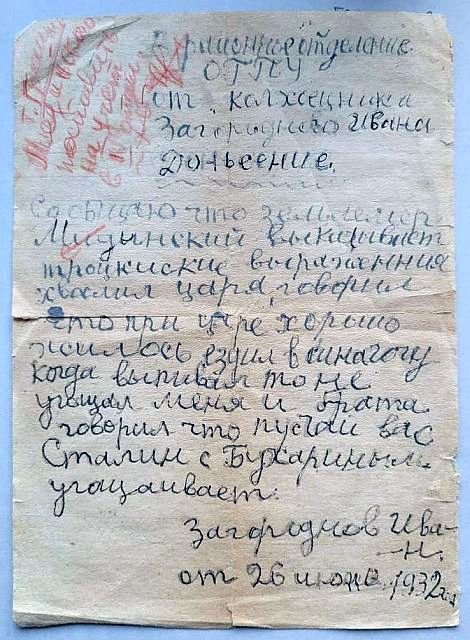 В районное отделение
ОГПУ
от колхацника
Загороднова Ивана
Доньесение.
Саобщаю что землемер
Мидынский выказывает
троцкиские выражения
хвалил царя, говорил
что при царе хорошо
жилось ездил в синагогу
когда выпивал то не
угащал меня и брата
говорил что пускай вас
Сталин с Бухариным
угащаивает.
Загороднов Ива-
-н.
от 26 июня 1932
поставить
на учет
в